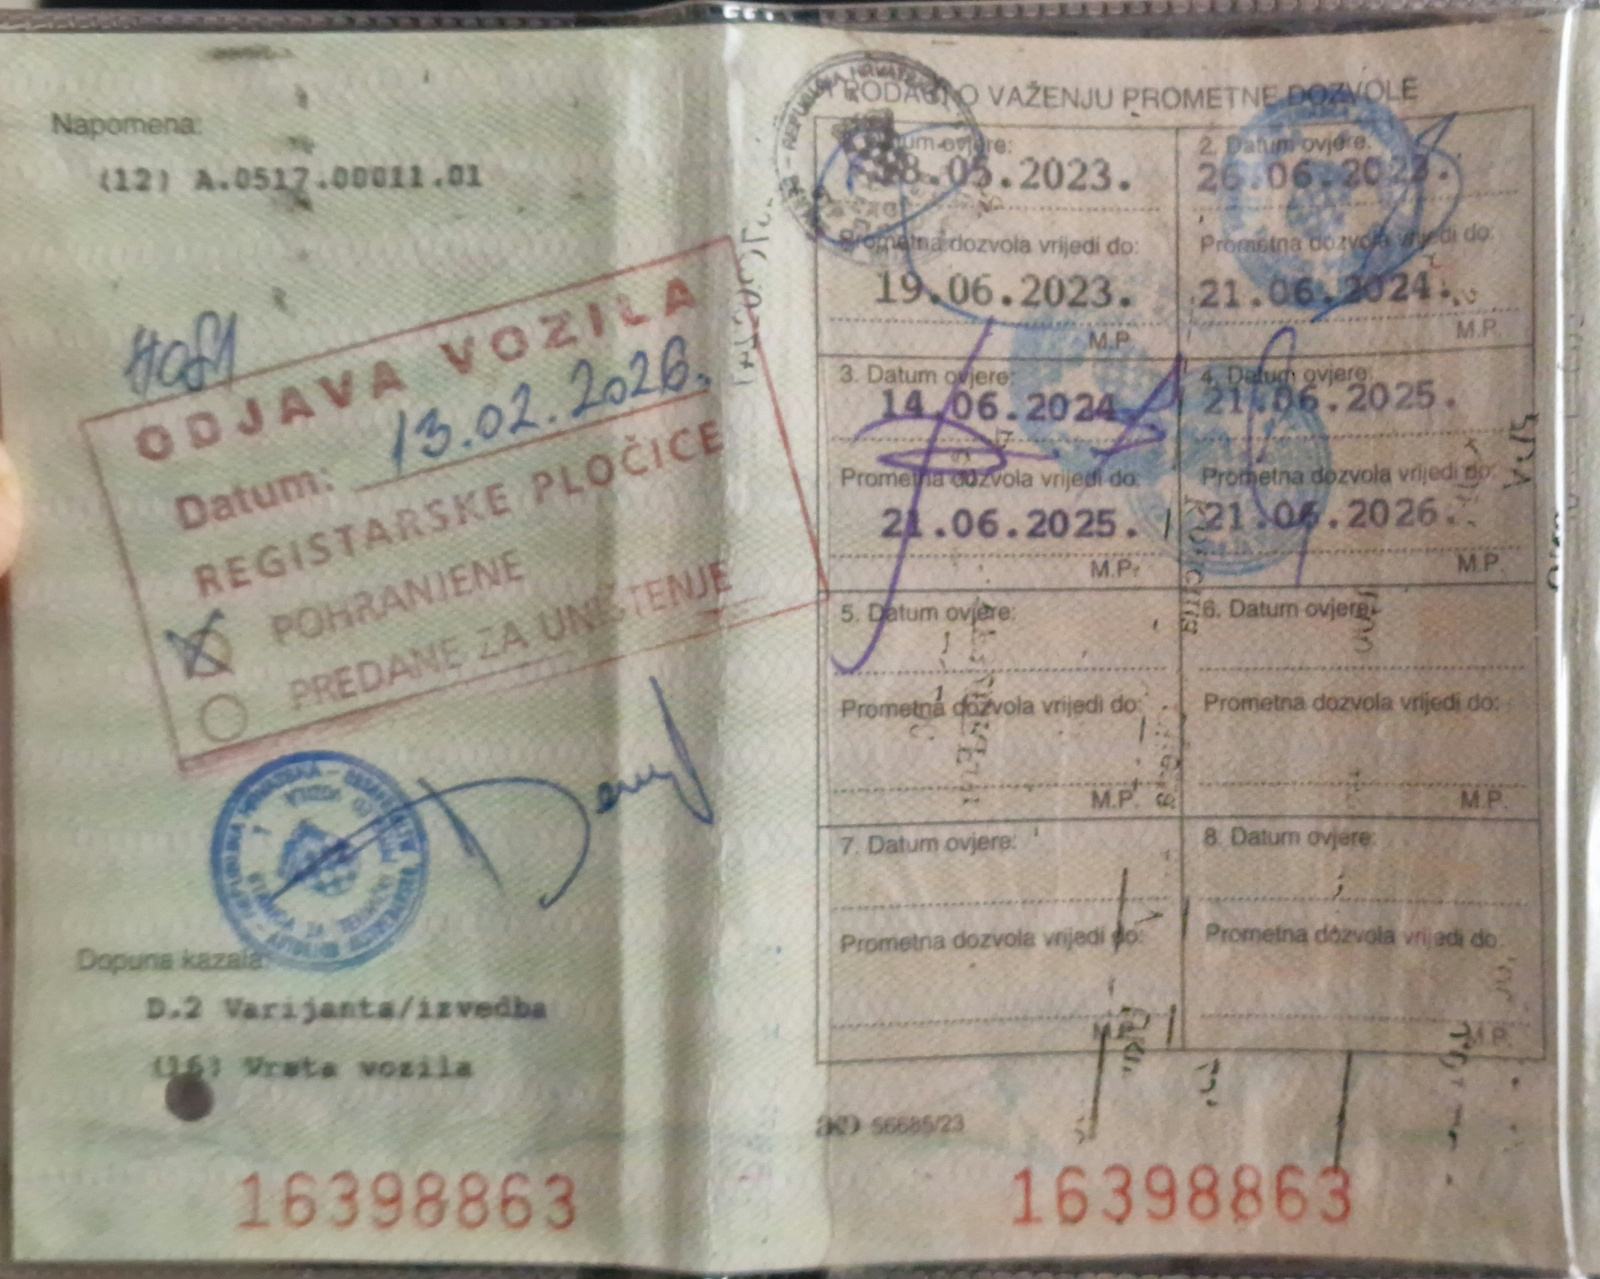 Napomena:
(12) A.0517.00011.01
ODJAVA VOZILA
Datum: 13.02.2026.
REGISTARSKE PLOČICE
POHRANJENE
PREDANE ZA UNIŠTENJE
Dopuna kazala:
D.2 Varijanta/izvedba
(16) Vrsta vozila
16398863
PODACI O VAŽENJU PROMETNE DOZVOLE
Datum ovjere:
18.05.2023.
Prometna dozvola vrijedi do:
19.06.2023.
M.P.
2. Datum ovjere:
26.06.2023.
Prometna dozvola vrijedi do:
21.06.2024.
M.P.
3. Datum ovjere:
14.06.2024
Prometna dozvola vrijedi do:
21.06.2025.
M.P.
4. Datum ovjere:
21.06.2025.
Prometna dozvola vrijedi do:
21.06.2026.
M.P.
5. Datum ovjere:
Prometna dozvola vrijedi do:
M.P.
6. Datum ovjere:
Prometna dozvola vrijedi do:
M.P.
7. Datum ovjere:
Prometna dozvola vrijedi do:
8. Datum ovjere:
Prometna dozvola vrijedi do:
M.P.
AKD 56685/23
16398863